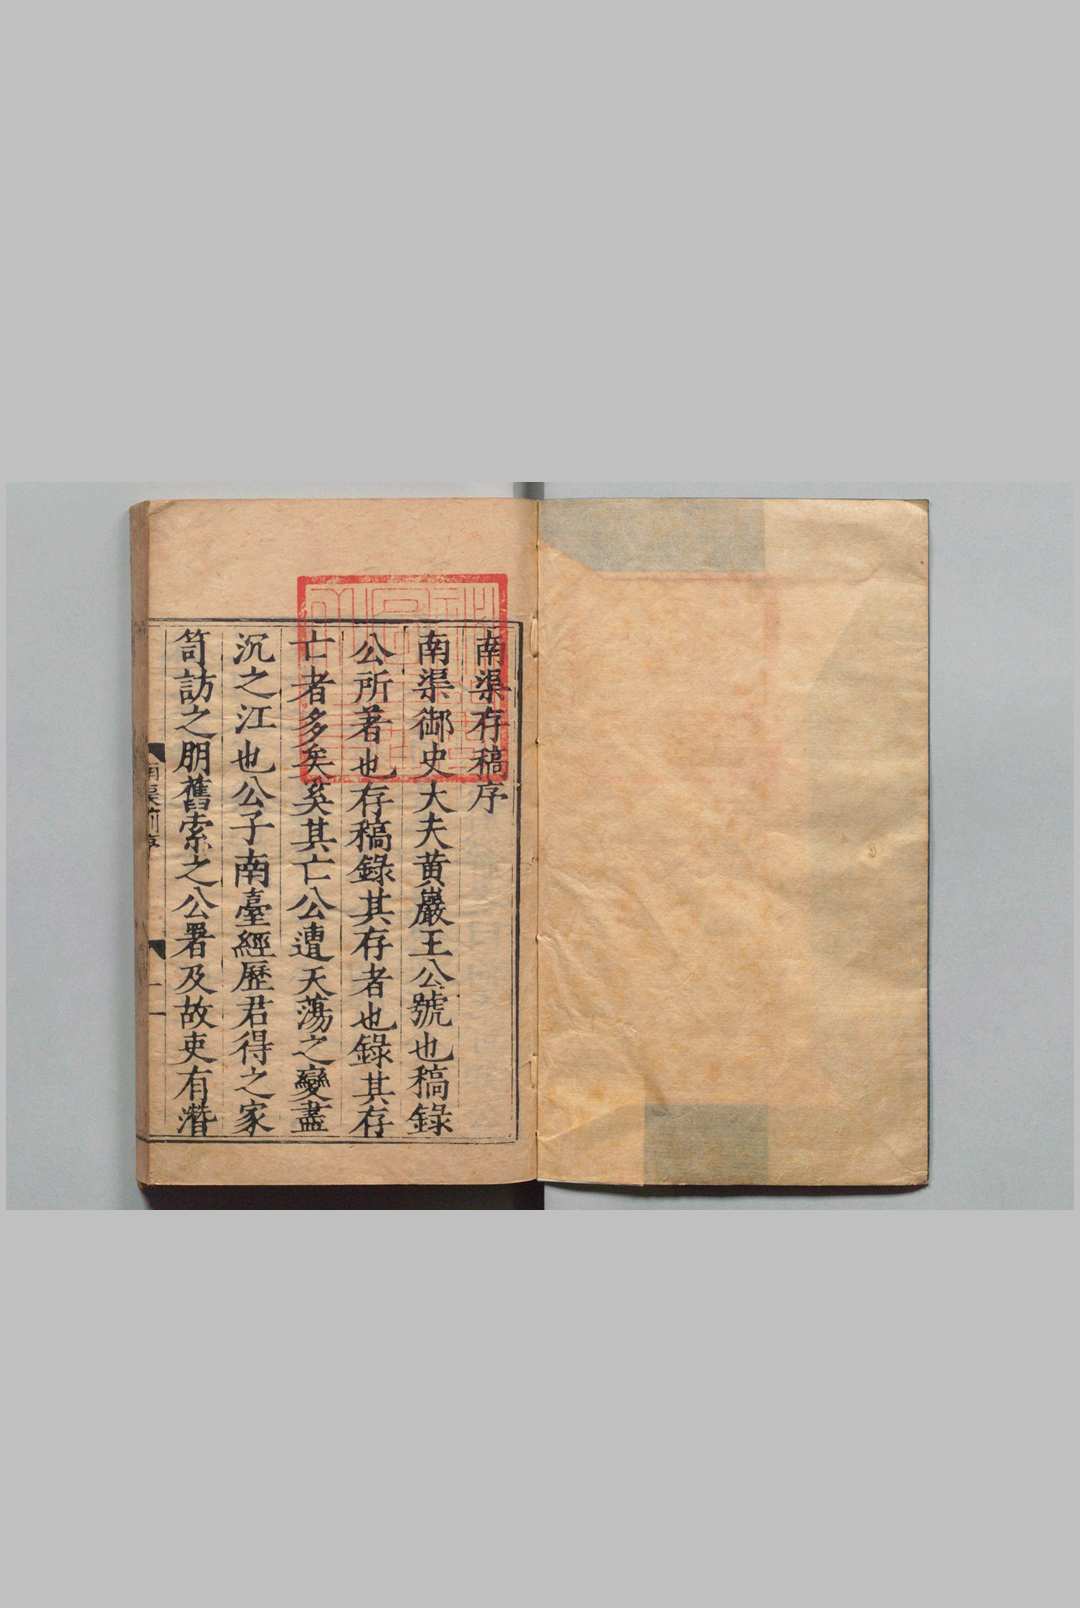 南渠存稿序
南渠御史大夫黄巖王公號也稿錄
公所著也存稿錄其存者也錄其存
亡者多矣奚其亡公遭天蕩之變盡
沉之江也公子南臺經歷君得之家
笥訪之朋舊索之公署及故吏有濳